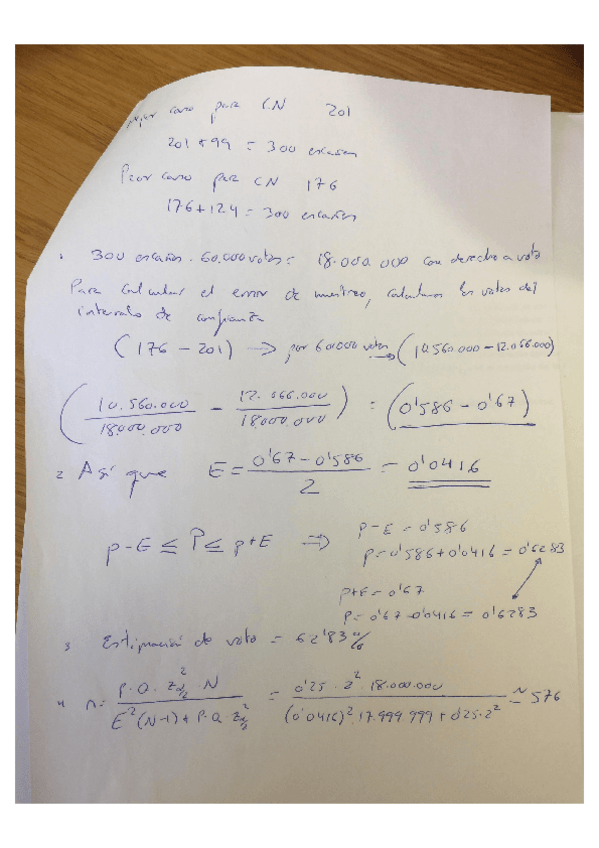 mejor caso para CN 201
201+99 = 300 escaños
Peor caso para CN 176
176+124 = 300 escaños
1 300 escaños · 60.000 votos = 18.000.000 con derecho a voto
Para calcular el error de muestreo, calculamos los votos del
intervalo de confianza
(176 - 201) ⇒ por 60000 votos → (10.560.000 - 12.066.000)
(10.560.000/18.000.000 - 12.066.000/18.000.000) = (0'586 - 0'67)
2 Así que E = (0'67 - 0'586)/2 = 0'0416
p-E ≤ P ≤ p+E ⇒ p-E = 0'586
p = 0'586 + 0'0416 = 0'6283
p+E = 0'67
p = 0'67 - 0'0416 = 0'6283
3 Estimación de voto = 62'83%
4 n = (P·Q·Z²α/2·N)/(E²(N-1)+P·Q·Z²α/2) = (0'25·2²·18.000.000)/((0'0416)²·17.999.999+0'25·2²) ≃ 576